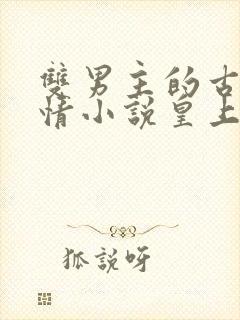 雙男主的古
情小說皇上
狐說呀